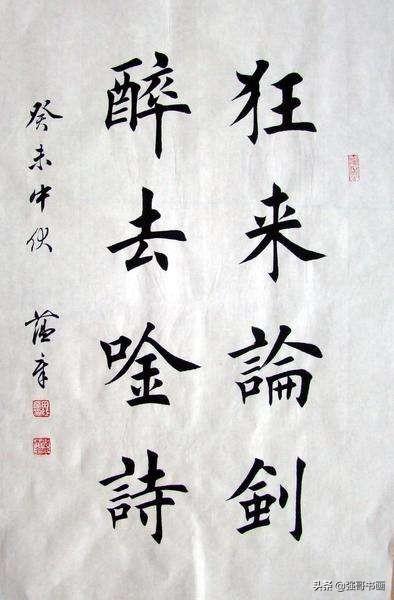 狂来論劍
醉去唫詩
癸未中伏
头条 @强哥书画